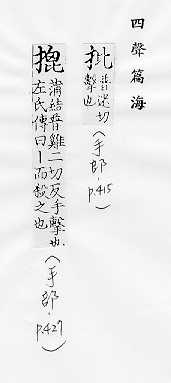 四聲篇海
批 普迷切擊也（手部，p.415）
㨢 蒲結普雞二切反手擊也
左氏傳曰｜而殺之也（手部，p.427）